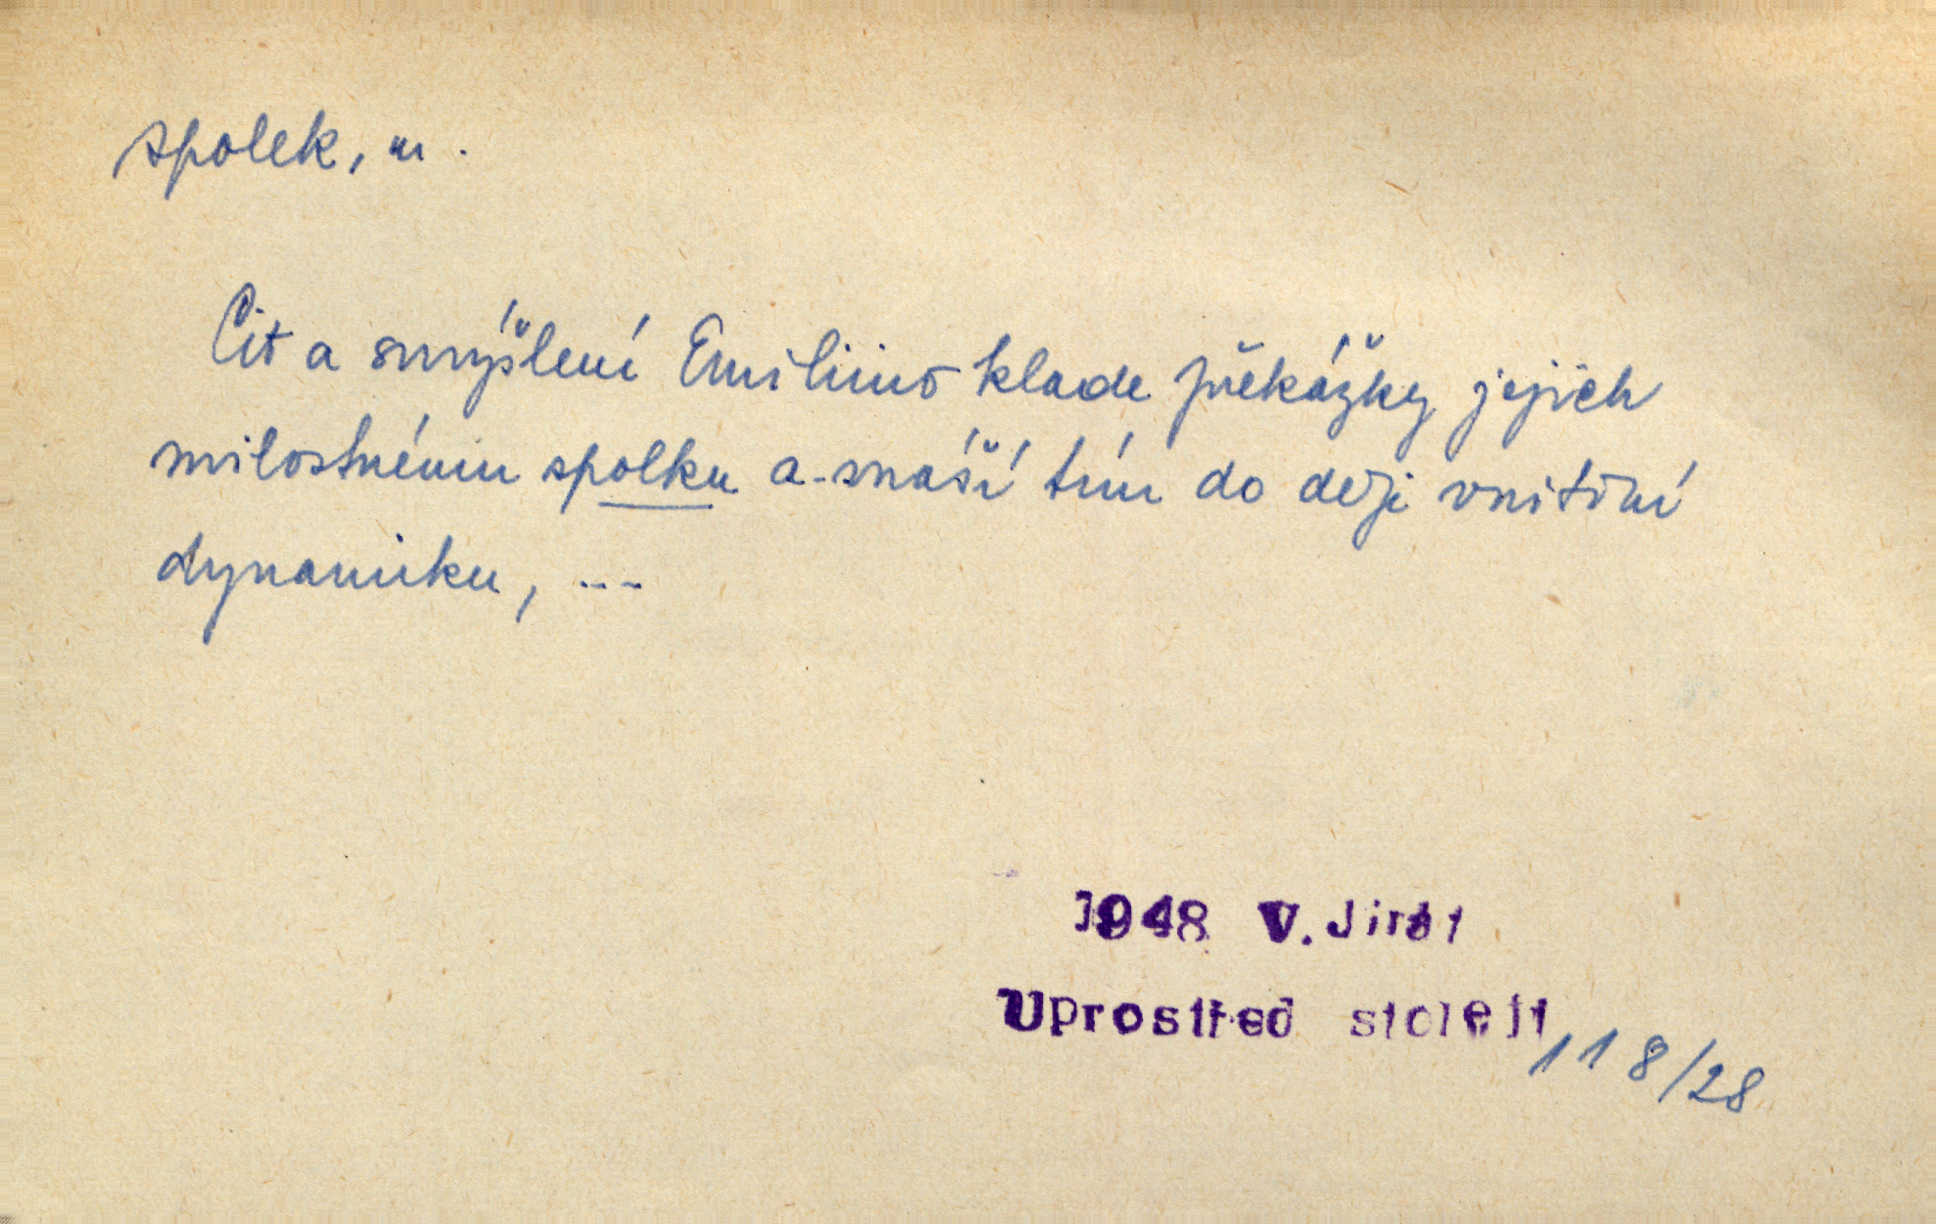 spolek, m.
Cit a smýšlení Emiliino klade překážky jejich
milostnému spolku a snáší tím do děje vnitřní
dynamiku, ---
1948 V. Jirát
Uprostřed století
118/28